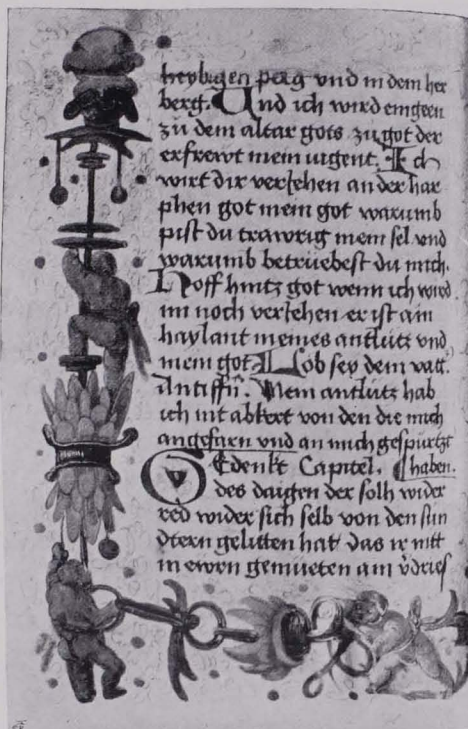 heyligen perg vnd in dem her
berg. Vnd ich wird eingeen
zu dem altar gots zu got der
erfrewt mein iugent. Ich
wirt dir veriehen an der har
phen got mein got warumb
pist du trawrig mein sel vnd
warumb betrüebest du mich.
Hoff hintz got wenn ich wird
im noch veriehen er ist ain
haylant meines antlütz vnd
mein got Lob sey dem vatt.
Antiffn. Mein antlütz hab
ich nit abkert von den die mich
angefarn vnd an mich gespürtzt
Edenkt Capitel. haben.
des daigen der solh wider
red wider sich selb von den sun
dtern gelitten hat das ir nitt
in ewrn gemueten ain vdries